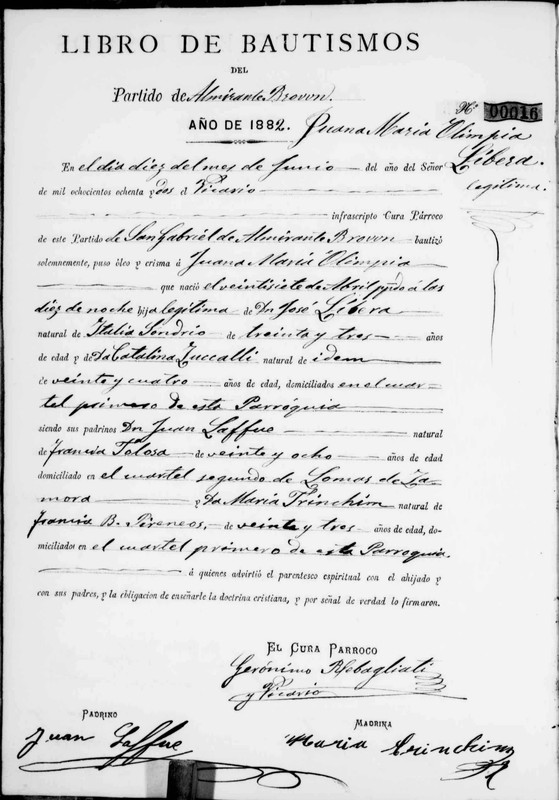 LIBRO DE BAUTISMOS
DEL
Partido de Almirante Brovon.
Nº 00016
AÑO DE 1882. Juana Maria Olimpia
Libera
legitima.
En el dia diez del mes de Junio del año del Señor
de mil ochocientos ochenta y dos el Vicario
infrascripto Cura Párroco
de este Partido de San Gabriel de Almirante Brovon bautizó
solemnemente, puso óleo y crisma á Juana Maria Olimpia
que nació el veintisiete de Abril ppdo á las
diez de noche hija legitima de Dn José Libera
natural de Italia Sondrio de treinta y tres años
de edad y de Da Catalina Zuccalli natural de idem
de veinte y cuatro años de edad, domiciliados en el cuar-
tel primero de esta Parróquia
siendo sus padrinos Dn Juan Laffue natural
de francia Tolosa de veinte y ocho años de edad
domiciliado en el cuartel segundo de Lomas de Za
mora y Da Maria Trinchim natural de
francia B. Pireneos, de veinte y tres años de edad, do-
miciliados en el cuartel primero de esta Parroquia.
á quienes advirtió el parentesco espiritual con el ahijado y
con sus padres, y la obligacion de enseñarle la doctrina cristiana, y por señal de verdad lo firmaron.
EL CURA PARROCO
Gerónimo Rebagliati
y Vicario
PADRINO
MADRINA
Juan Laffue
Maria Trinchim